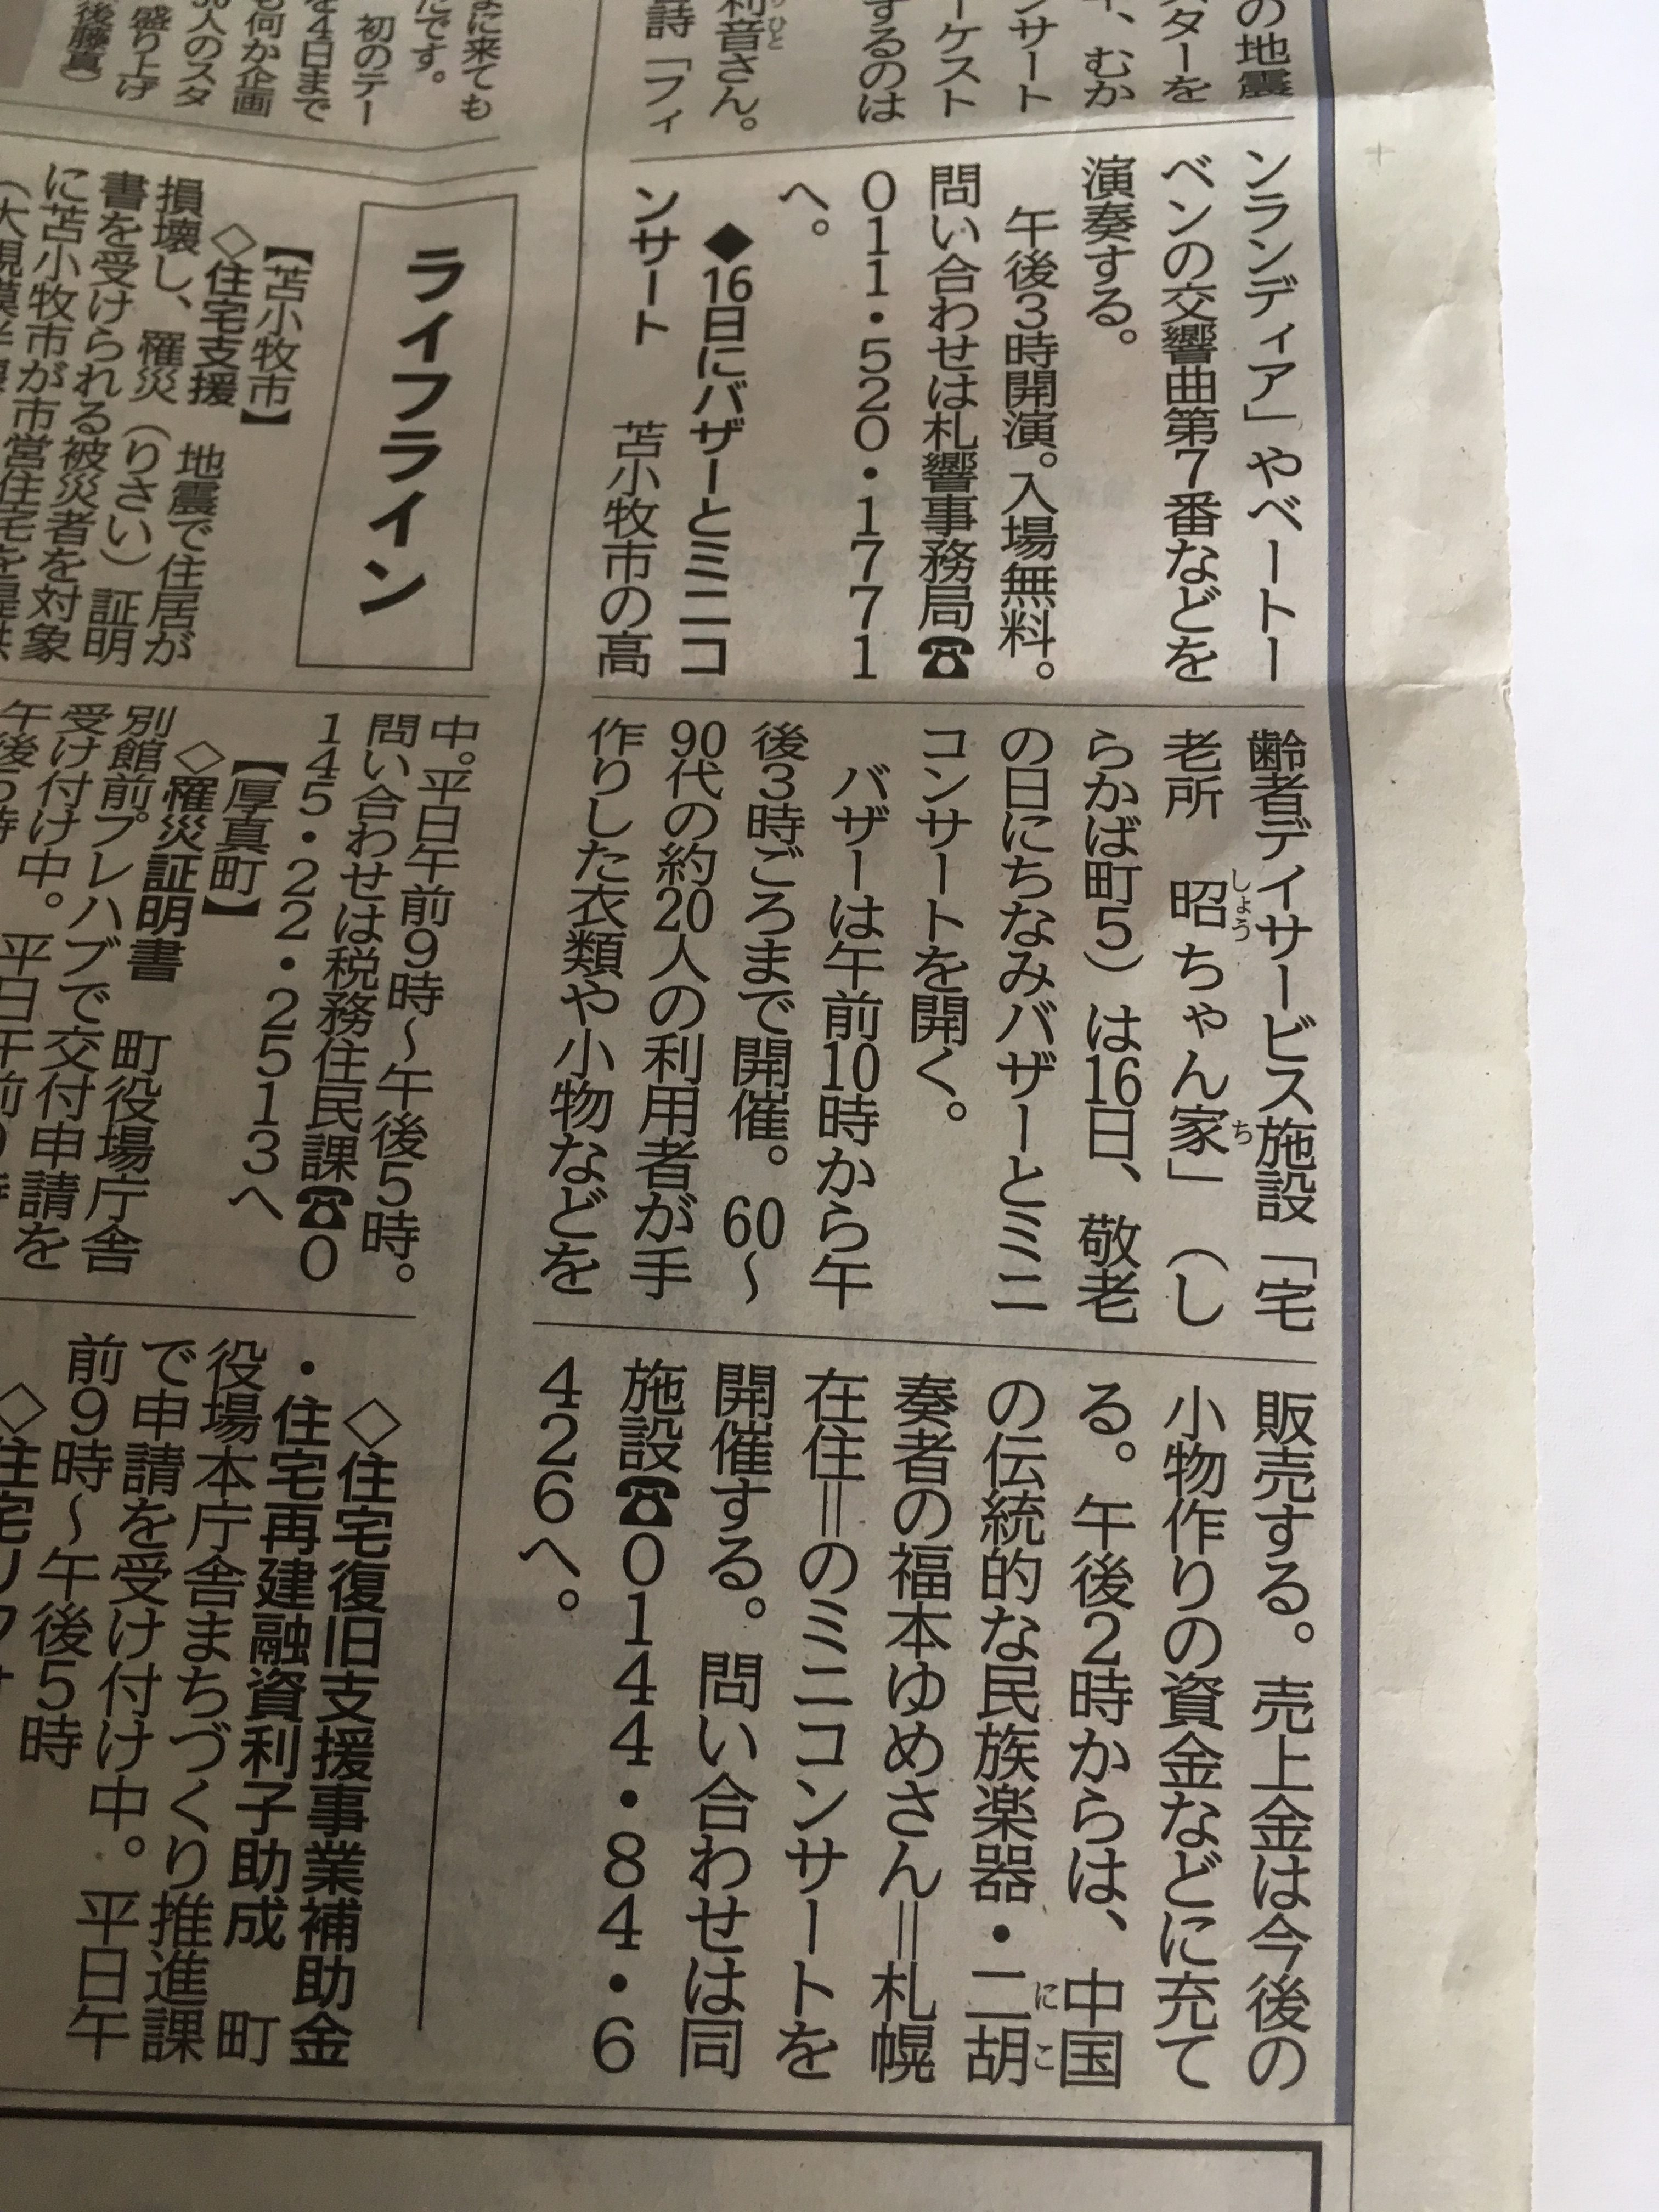 の地震
スターを
、むか
ンサート
ーケスト
するのは
利音さん。
りひと
詩「フィ
ンランディア」やベートー
ベンの交響曲第7番などを
演奏する。
午後3時開演。入場無料。
問い合わせは札響事務局☎
011・520・1771
へ。
◆16日にバザーとミニコ
ンサート 苫小牧市の高
齢者デイサービス施設「宅
老所 昭ちゃん家」(し
しょう
ち
らかば町5)は16日、敬老
の日にちなみバザーとミニ
コンサートを開く。
バザーは午前10時から午
後3時ごろまで開催。60〜
90代の約20人の利用者が手
作りした衣類や小物などを
販売する。売上金は今後の
小物作りの資金などに充て
る。午後2時からは、中国
の伝統的な民族楽器・二胡
にこ
奏者の福本ゆめさん=札幌
在住=のミニコンサートを
開催する。問い合わせは同
施設☎0144・84・6
426へ。
まに来ても
たです。
初のテー
を4日まで
も何か企画
人のスタ
盛り上げ
後藤真)
ライフライン
【苫小牧市】
◇住宅支援 地震で住居が
損壊し、罹災(りさい)証明
書を受けられる被災者を対象
に苫小牧市が市営住宅を提供
中。平日午前9時〜午後5時。
問い合わせは税務住民課☎0
145・22・2513へ
【厚真町】
◇罹災証明書 町役場庁舎
別館前プレハブで交付申請を
受け付け中。平日午前9時
午後5時
◇住宅復旧支援事業補助金
・住宅再建融資利子助成 町
役場本庁舎まちづくり推進課
で申請を受け付け中。平日午
前9時〜午後5時